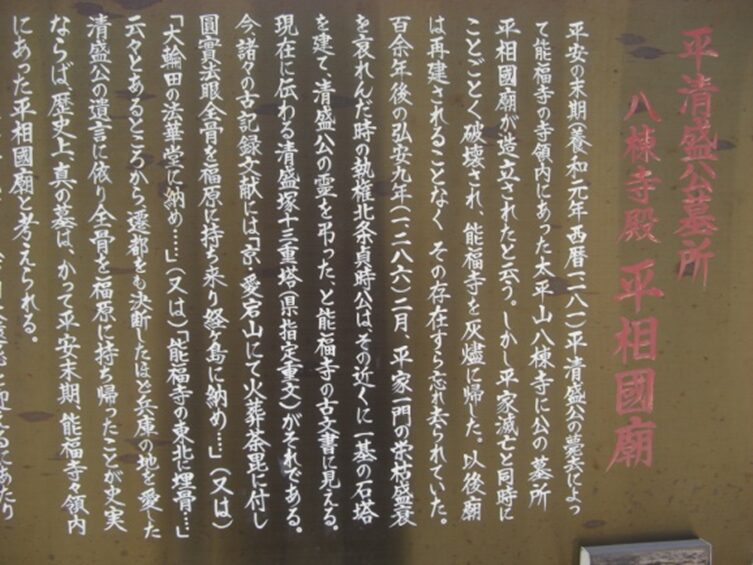 平清盛公墓所
八棟寺殿 平相國廟
平安の末期(養和元年 西暦一一八一)平清盛公の薨去によっ
て能福寺の寺領内にあった太平山八棟寺に公の墓所
平相國廟が造立されたと云う。しかし平家滅亡と同時に
ことごとく破壊され、能福寺を灰燼に帰した。以後廟
は再建されることなく その存在すら忘れ去られていた。
百余年後の弘安九年(一二八六)二月、平家一門の栄枯盛衰
を哀れんだ時の執権北条貞時公は、その近くに一基の石塔
を建て、清盛公の霊を弔った、と能福寺の古文書に見える。
現在に伝わる清盛塚十三重塔(県指定重文)がそれである。
今、諸々の古記録文献には「京・愛宕山にて火葬荼毘に付し
圓實法眼全骨を福原に持ち来り経ヶ島に納め…」(又は)
「大輪田の法華堂に納め…」(又は)「能福寺の東北に埋骨…」
云々とあるところから遷都をも決断したほど兵庫の地を愛した
清盛公の遺言に依り全骨を福原に持ち帰ったことが史実
ならば 歴史上、真の墓は、かって平安末期、能福寺々領内
にあった平相國廟と考えられる。